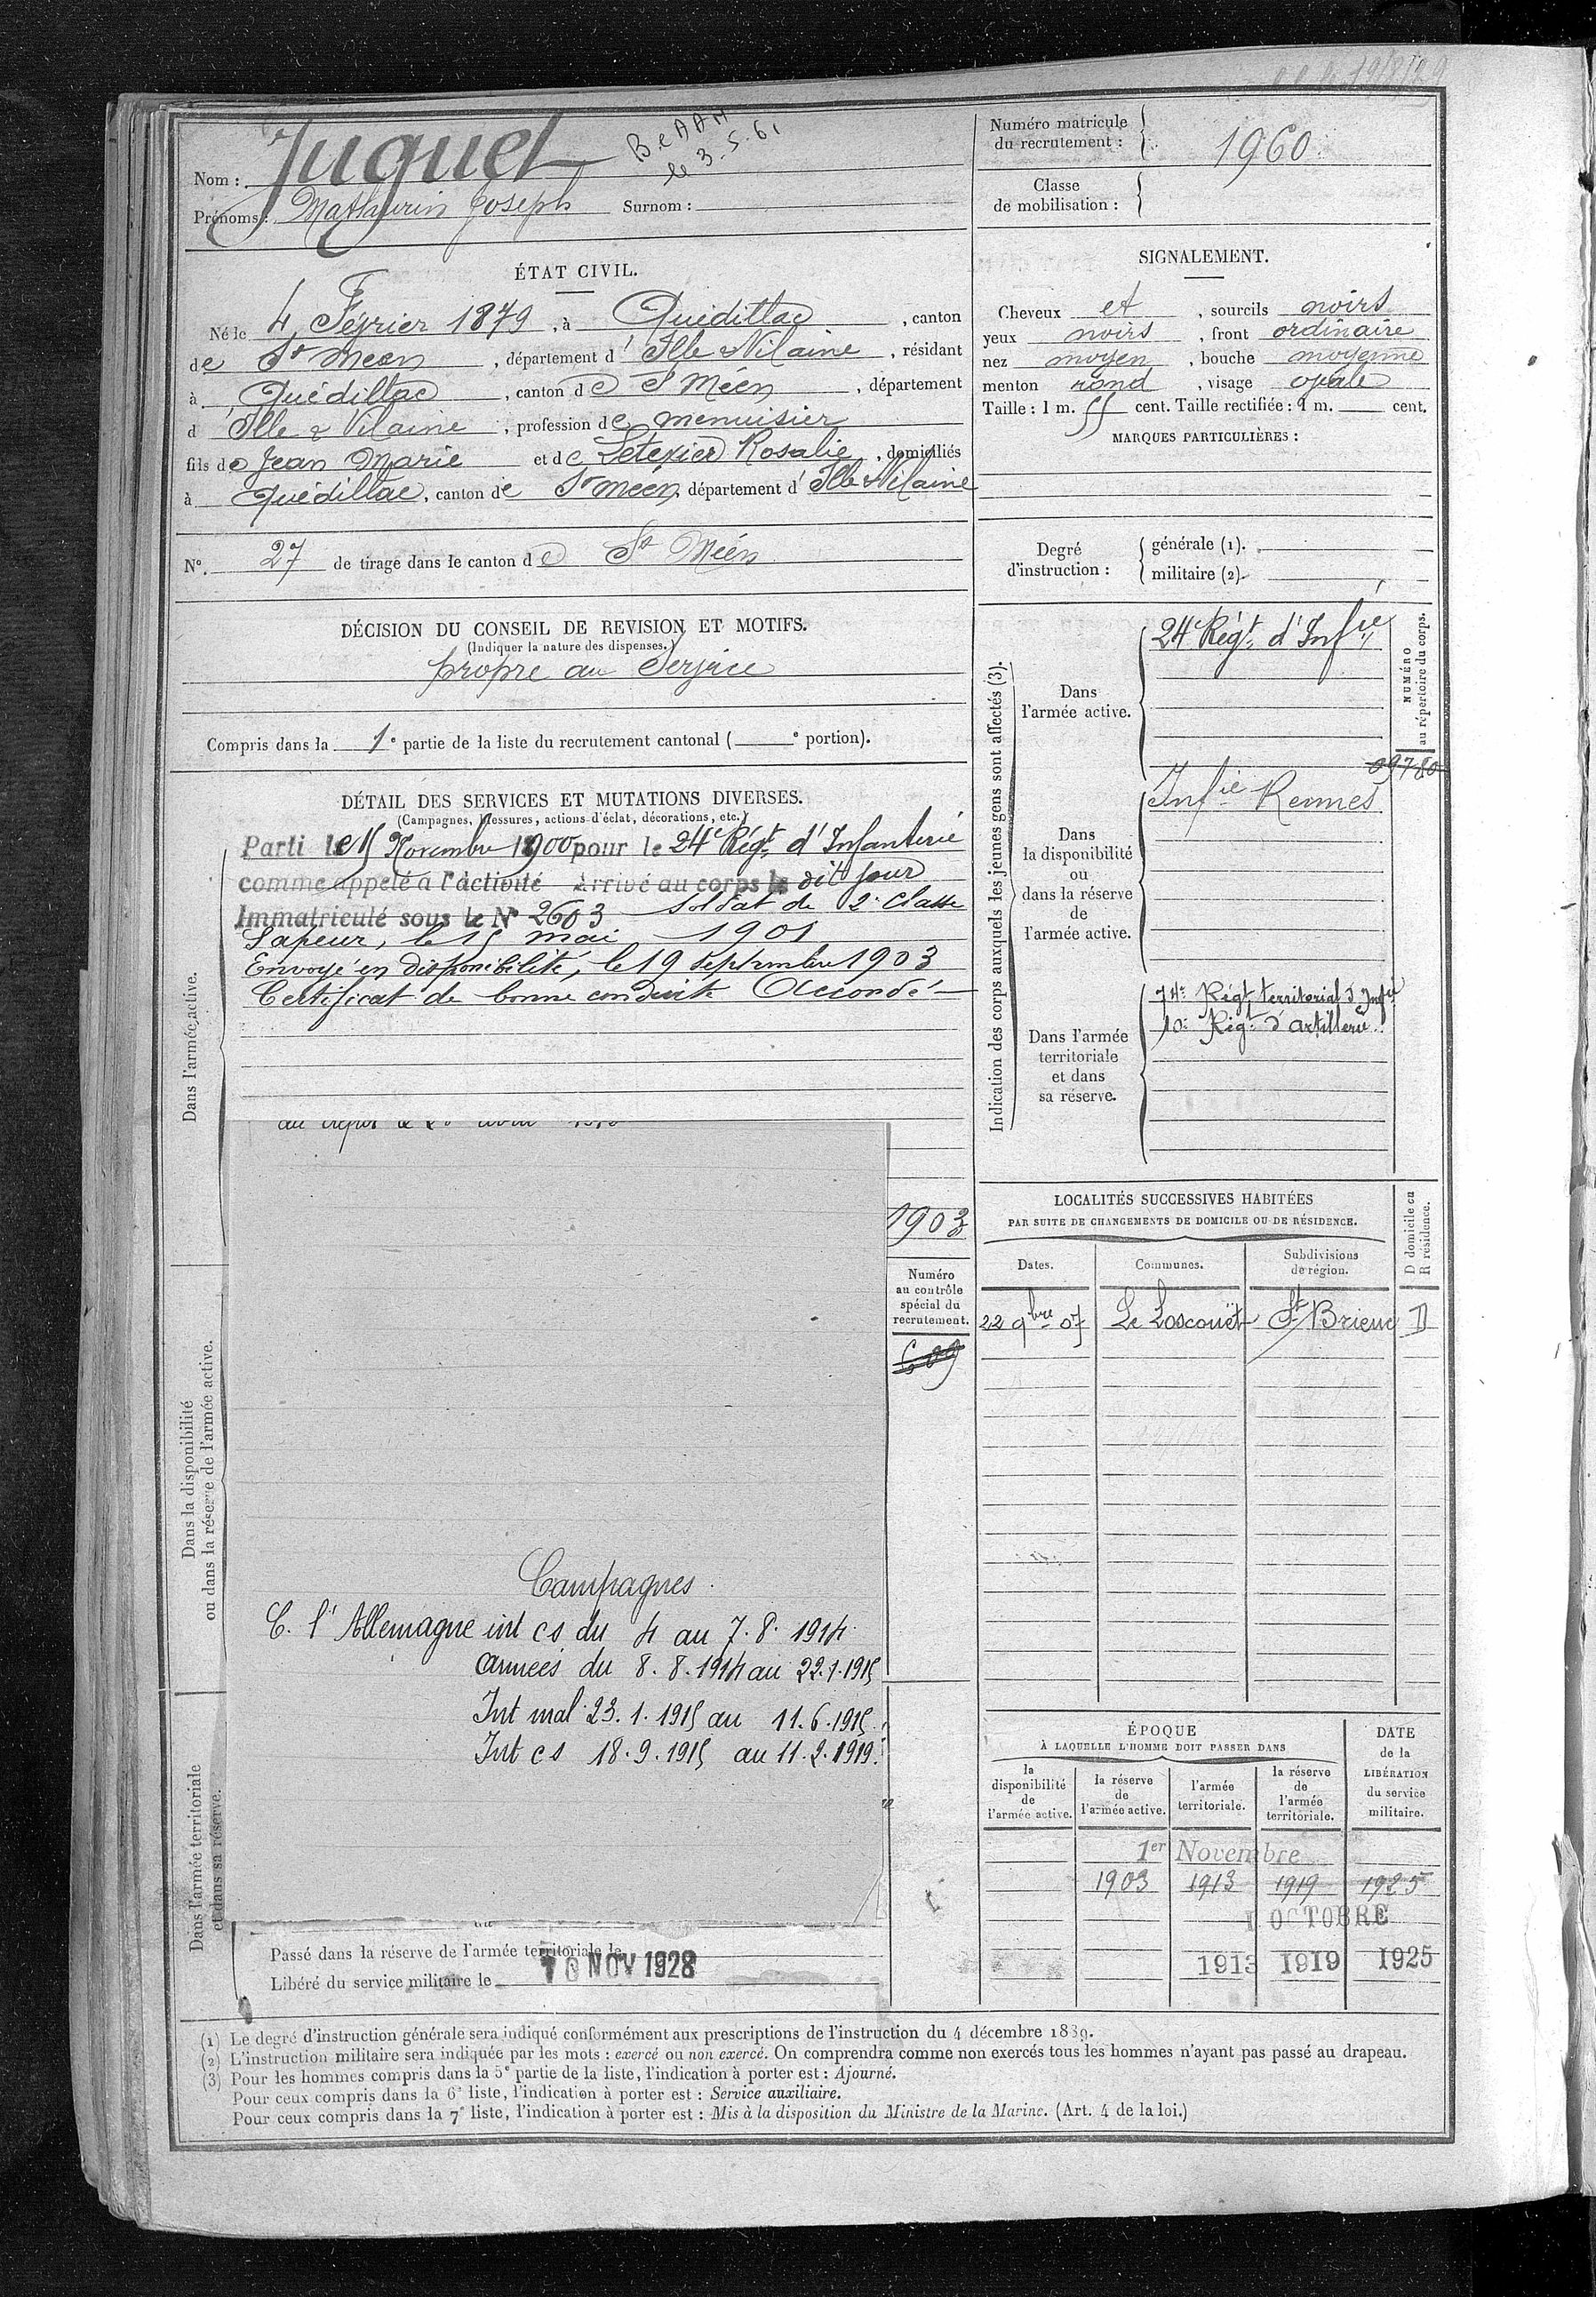 Juguet
BCAAM
le 3.5.61
Nom :
Prénoms : Mathurin Joseph Surnom :
Numéro matricule
du recrutement : 1960
Classe
de mobilisation :
ÉTAT CIVIL.
Né le 4 Février 1879, à Quédillac, canton
de St Méen, département d'Ille & Vilaine, résidant
à Quédillac, canton de St Méen, département
d'Ille & Vilaine, profession de menuisier
fils de Jean Marie et de Letexier Rosalie, domiciliés
à Quédillac, canton de St Méen, département d'Ille & Vilaine
N°. 27 de tirage dans le canton de St Méen
SIGNALEMENT.
Cheveux et, sourcils noirs
yeux noirs, front ordinaire
nez moyen, bouche moyenne
menton rond, visage ovale
Taille : 1 m. 55 cent. Taille rectifiée : 1 m. cent.
MARQUES PARTICULIÈRES :
Degré
d'instruction :
générale (1).
militaire (2).
DÉCISION DU CONSEIL DE REVISION ET MOTIFS.
(Indiquer la nature des dispenses.)
propre au Service
Compris dans la 1e partie de la liste du recrutement cantonal ( e portion).
DÉTAIL DES SERVICES ET MUTATIONS DIVERSES.
(Campagnes, blessures, actions d'éclat, décorations, etc.)
Dans l'armée active.
Parti le 15 Novembre 1900 pour le 24e Régt d'Infanterie
comme appelé à l'activité Arrivé au corps le dit jour
Immatriculé sous le N° 2603 soldat de 2e Classe
Sapeur, le 15 mai 1901
Envoyé en disponibilité, le 19 septembre 1903
Certificat de bonne conduite Accordé
1903
Numéro
au contrôle
spécial du
recrutement.
609
Dans la disponibilité
ou dans la réserve de l'armée active.
Campagnes.
C. l'Allemagne int cs du 4 au 7.8.1914
armées du 8.8.1914 au 22.1.1915
Int mal 23.1.1915 au 11.6.1915
Int cs 18.9.1915 au 11.2.1919
Dans l'armée territoriale
et dans sa réserve.
Passé dans la réserve de l'armée territoriale le
Libéré du service militaire le 10 NOV 1928
Indication des corps auxquels les jeunes gens sont affectés (3).
NUMÉRO
au répertoire du corps.
Dans
l'armée active.
24e Régt d'Infie
09780
Dans
la disponibilité
ou
dans la réserve
de
l'armée active.
Infie Rennes
Dans l'armée
territoriale
et dans
sa réserve.
74e Régt territorial d'Infie
10e Régt d'Artillerie
LOCALITÉS SUCCESSIVES HABITÉES
PAR SUITE DE CHANGEMENTS DE DOMICILE OU DE RÉSIDENCE.
D domicile ou
R résidence.
Dates. Communes. Subdivisions
de région.
22 9bre 07 Le Loscouët St Brieuc D
ÉPOQUE
À LAQUELLE L'HOMME DOIT PASSER DANS
DATE
de la
LIBÉRATION
du service
militaire.
la
disponibilité
de
l'armée active.
la réserve
de
l'armée active.
l'armée
territoriale.
la réserve
de
l'armée
territoriale.
1er Novembre
1903 1913 1919 1925
1 OCTOBRE
1913 1919 1925
(1) Le degré d'instruction générale sera indiqué conformément aux prescriptions de l'instruction du 4 décembre 1889.
(2) L'instruction militaire sera indiquée par les mots : exercé ou non exercé. On comprendra comme non exercés tous les hommes n'ayant pas passé au drapeau.
(3) Pour les hommes compris dans la 5e partie de la liste, l'indication à porter est : Ajourné.
Pour ceux compris dans la 6e liste, l'indication à porter est : Service auxiliaire.
Pour ceux compris dans la 7e liste, l'indication à porter est : Mis à la disposition du Ministre de la Marine. (Art. 4 de la loi.)